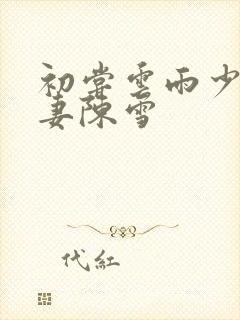 初尝雲雨少
妻陳雪
代紅